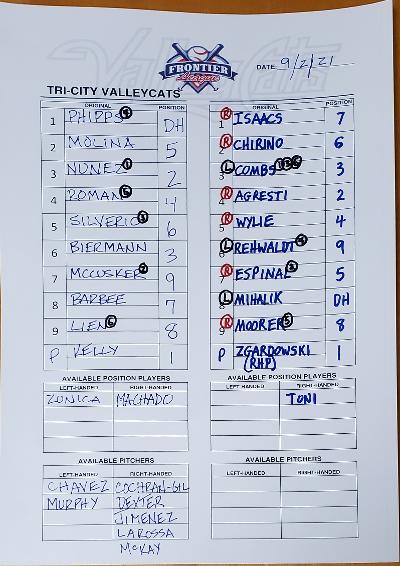 FRONTIER
League
DATE 9/2/21
TRI-CITY VALLEYCATS
ORIGINAL POSITION
1 PHIPPS DH
2 MOLINA 5
3 NUNEZ 2
4 ROMAN 4
5 SILVERIO 6
6 BIERMANN 3
7 MCCUSKER 9
8 BARBEE 7
9 LIEN 8
P KELLY 1
AVAILABLE POSITION PLAYERS
LEFT-HANDED RIGHT-HANDED
ZUNICA MACHADO
AVAILABLE PITCHERS
LEFT-HANDED RIGHT-HANDED
CHAVEZ COCHRAN-GIL
MURPHY DEXTER
JIMENEZ
LAROSSA
MCKAY
ORIGINAL POSITION
R 1 ISAACS 7
R 2 CHIRINO 6
L 3 COMBS 3
R 4 AGRESTI 2
R 5 WYLIE 4
L 6 REHWALDT 9
R 7 ESPINAL 5
L 8 MIHALIK DH
R 9 MOORER 8
P ZGARDOWSKI 1
(RHP)
AVAILABLE POSITION PLAYERS
LEFT-HANDED RIGHT-HANDED
TONI
AVAILABLE PITCHERS
LEFT-HANDED RIGHT-HANDED